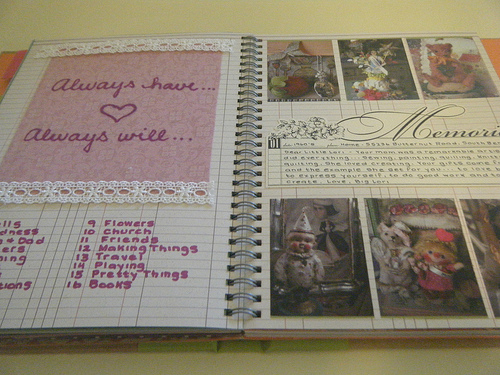 Always have...
Always will...
lls
dness
+ Dad
ers
ing
ions
9 Flowers
10 Church
11 Friends
12 Making Things
13 Travel
14 Playing
15 Pretty Things
16 Books
Memori
01
Home
Dear Little Lori - Your mom was a remarkable
did everything... Sewing, painting,
quilting. She loved creating. Your gifts come
and the example she set for you - to love
to express yourself, to do good work and
create. Love, Big Lori